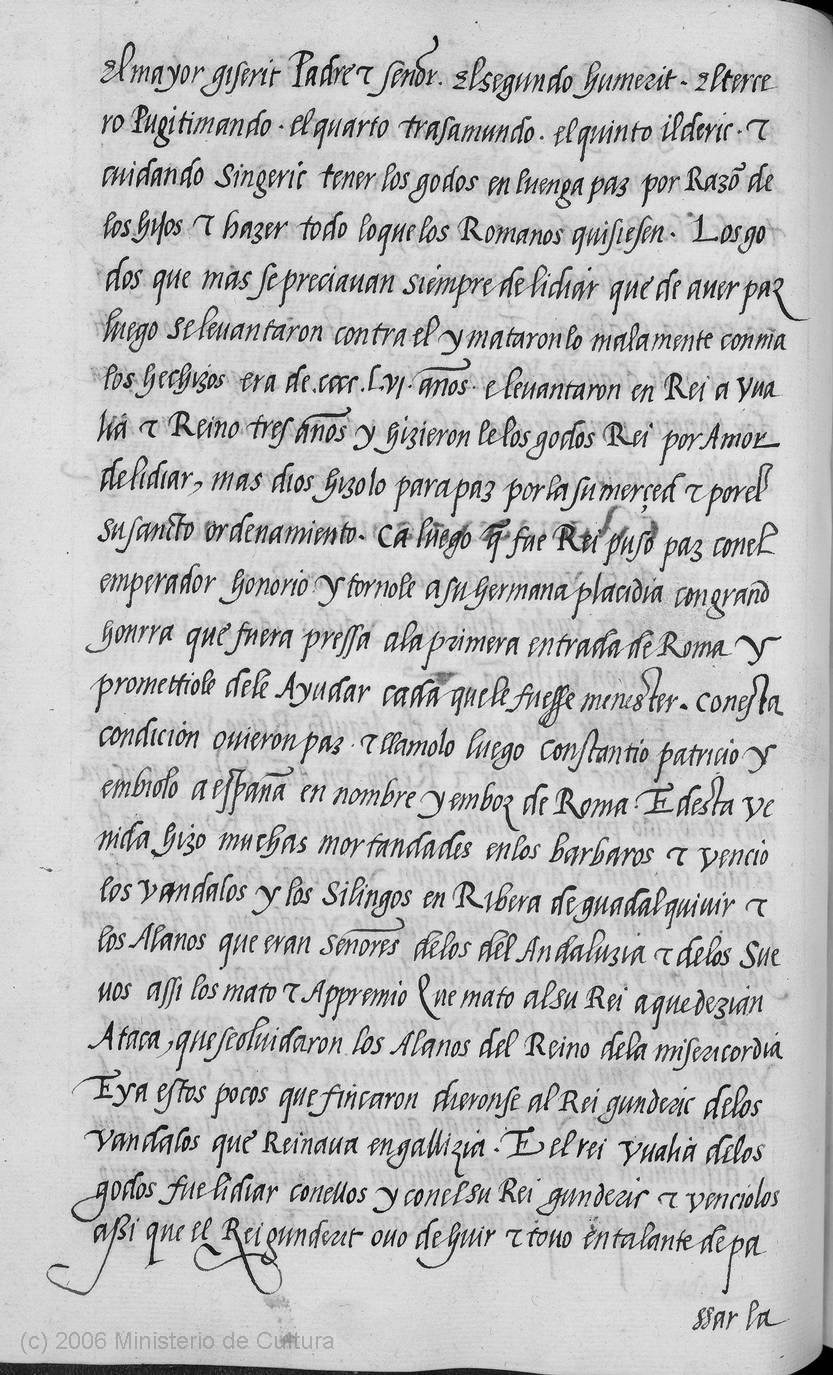 El mayor giserit Padre τ señor. El segundo humerit. El terce
ro Pugitimando. el quarto trasamundo. el quinto ilderic. τ
cuidando Singeric tener los godos en luenga paz por Razõ de
los hijos τ hazer todo lo que los Romanos quisiesen. Los go
dos que mas se preciauan siempre de lidiar que de auer paz
luego se leuantaron contra el y mataronlo malamente con ma
los hechizos era de .cccc.LVI. años. e leuantaron en Rei a Vua
lia τ Reino tres años y hizieron le los godos Rei por Amor
de lidiar, mas dios hizolo para paz por la su merçed τ por el
su sancto ordenamiento. Ca luego q̃ fue Rei puso paz con el
emperador honorio y tornole a su hermana placidia con grand
honrra que fuera pressa a la primera entrada de Roma y
promettiole dele Ayudar cada que le fuesse menester. Con esta
condicion ouieron paz. τ llamolo luego Constantio patricio y
embiolo a españa en nombre y emboz de Roma. E desta ve
nida hizo muchas mortandades en los barbaros τ vencio
los Vandalos y los Silingos en Ribera de guadalquiuir τ
los Alanos que eran señores delos del Andaluzia τ delos Sue
uos assi los mato τ Appremio Que mato al su Rei a que dezian
Ataça, que se oluidaron los Alanos del Reino dela misericordia
E ya estos pocos que fincaron dieronse al Rei gunderic delos
Vandalos que Reinaua en gallizia. E el rei Vualia delos
godos fue lidiar conellos y con el su Rei gunderic τ venciolos
assi que el Rei gunderit ouo de huir τ touo en talante de pa
ssar la
(c) 2006 Ministerio de Cultura